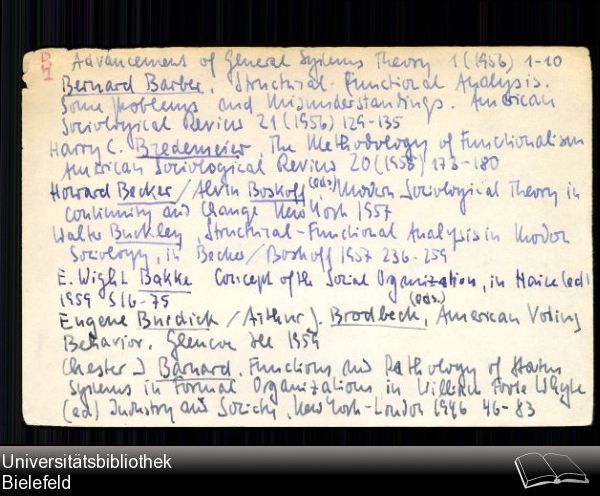 Advancement of General Systems Theory 1 (1956) 1-10
Bernard Barber, Structural-Functional Analysis.
Some Problems and Misunderstandings. American
Sociological Review 21 (1956) 129-135
Harry C. Bredemeier, The Methodology of Functionalism
American Sociological Review 20 (1955) 173-180
Howard Becker/Alvin Boskoff (eds.) Modern Sociological Theory in
Continuity and Change New York 1957
Walter Buckley, Structural-Functional Analysis in Modern
Sociology, in Becker/Boskoff 1957 236-259
E. Wight Bakke Concept of the Social Organization, in Haire (ed)
1959 S16-75
Eugene Burdick/Arthur J. Brodbeck, (eds.) American Voting
Behavior. Glencoe Ill 1959
Chester J Barnard, Functions and Pathology of Status
Systems in Formal Organizations, in William Foote Whyte
(ed) Industry and Society, New York-London 1946 46-83
Universitätsbibliothek
Bielefeld